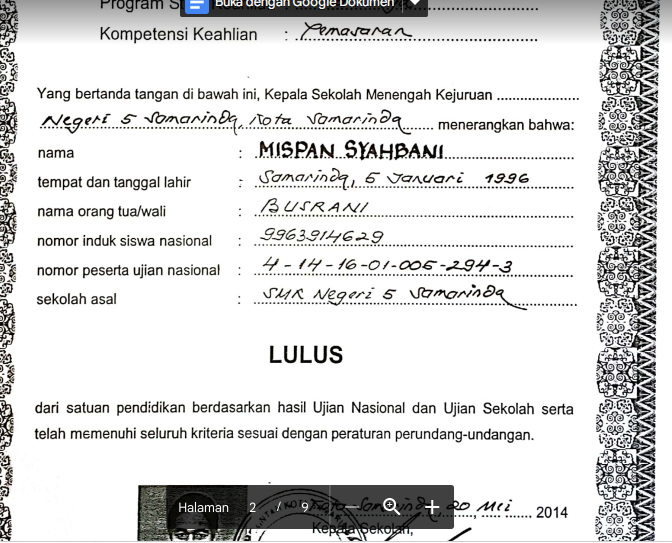 Program S
Buka dengan Google Dokumen
Kompetensi Keahlian : Pemasaran
Yang bertanda tangan di bawah ini, Kepala Sekolah Menengah Kejuruan
Negeri 5 Samarinda, Kota Samarinda menerangkan bahwa:
nama : MISPAN SYAHBANI
tempat dan tanggal lahir : Samarinda, 5 Januari 1996
nama orang tua/wali : BUSRANI
nomor induk siswa nasional : 9963914629
nomor peserta ujian nasional : 4-14-16-01-005-294-3
sekolah asal : SMK Negeri 5 Samarinda
LULUS
dari satuan pendidikan berdasarkan hasil Ujian Nasional dan Ujian Sekolah serta
telah memenuhi seluruh kriteria sesuai dengan peraturan perundang-undangan.
Kota Samarinda, 20 Mei 2014
Halaman 2 / 9
Kepala Sekolah,